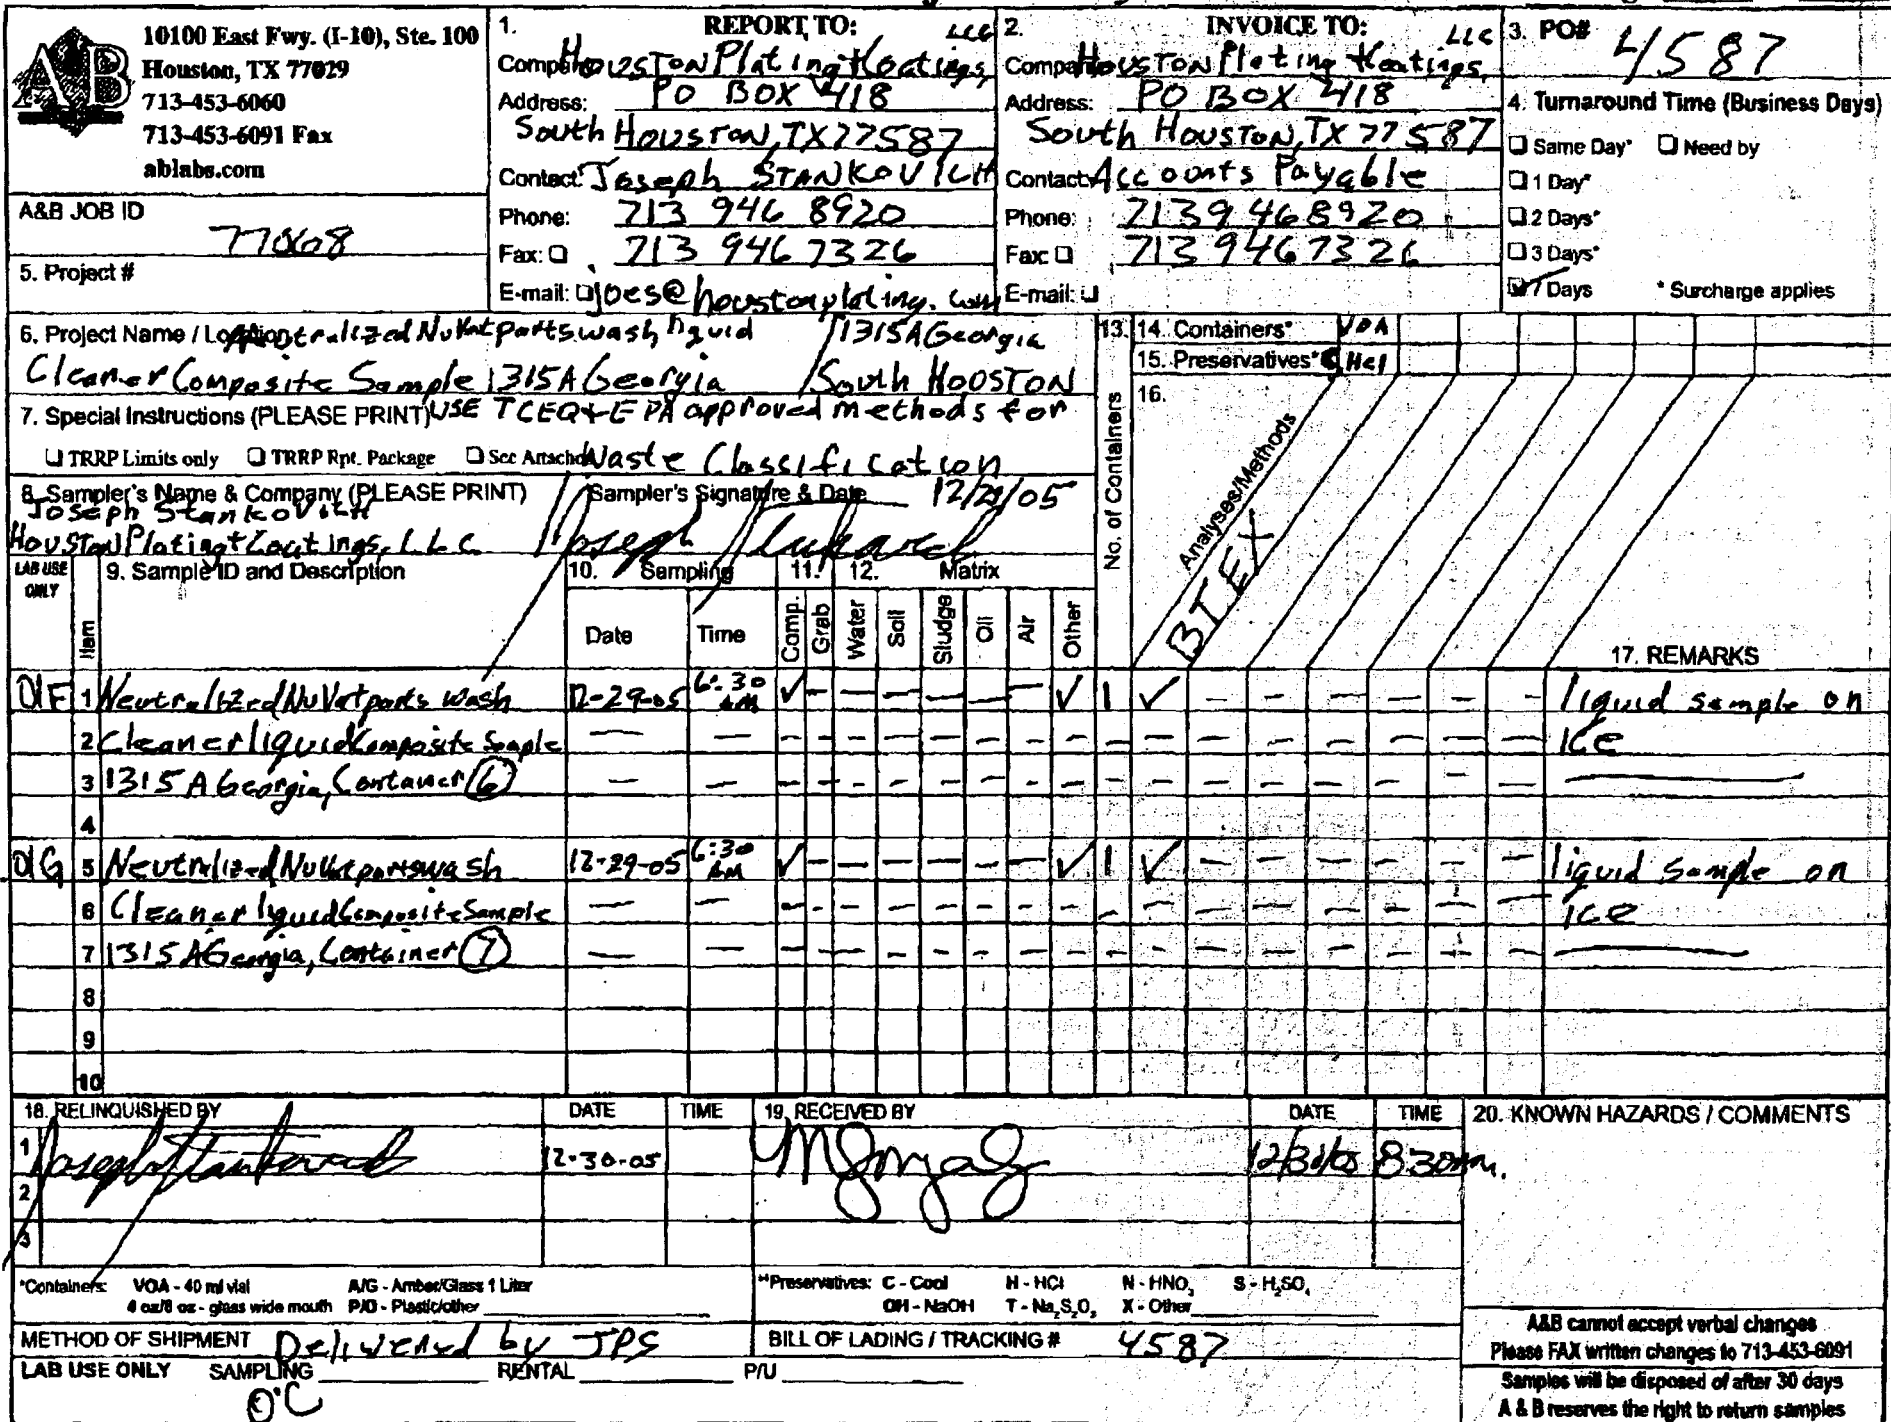 10100 East Fwy. (I-10), Ste. 100
Houston, TX 77029
713-453-6060
713-453-6091 Fax
ablabs.com
A&B
A&B JOB ID
77068
5. Project #
1. REPORT TO: LLC
Company: Houston Plating + Coatings,
Address: PO BOX 418
South Houston, TX 77587
Contact: Joseph STANKOVICH
Phone: 713 946 8920
Fax: 713 946 7326
E-mail: joes@houstonplating.com
2. INVOICE TO: LLC
Company: Houston Plating + Coatings,
Address: PO BOX 418
South Houston, TX 77587
Contact: Accounts Payable
Phone: 713 946 8920
Fax: 713 946 7326
E-mail:
3. PO# 4587
4. Turnaround Time (Business Days)
Same Day* Need by
1 Day*
2 Days*
3 Days*
7 Days * Surcharge applies
6. Project Name / Location Neutralized NuVat parts wash liquid / 1315A Georgia
Cleaner Composite Sample 1315A Georgia / South HOUSTON
7. Special Instructions (PLEASE PRINT) USE TCEQ + EPA approved methods for
TRRP Limits only TRRP Rpt. Package See Attached Waste Classification
8. Sampler's Name & Company (PLEASE PRINT) Sampler's Signature & Date 12/29/05
Joseph Stankovich
Houston Plating + Coatings, L.L.C.
13. No. of Containers
14. Containers* VOA
15. Preservatives** C HCl
16. Analyses/Methods
BTEX
LAB USE ONLY
Item
9. Sample ID and Description
10. Sampling
Date Time
11. Comp. Grab
12. Matrix
Water Soil Sludge Oil Air Other
17. REMARKS
01F 1 Neutralized NuVat parts wash 12-29-05 6:30 AM ✓ - - - - - - ✓ 1 ✓ - - - - - - liquid sample on
2 Cleaner liquid Composite Sample - - - - - - - - - - - - - - - - - ice
3 1315 A Georgia, Container (6) - - - - - - - - - - - - - - - - -
4
01G 5 Neutralized NuVat parts wash 12-29-05 6:30 AM ✓ - - - - - - ✓ 1 ✓ - - - - - - liquid sample on
6 Cleaner liquid Composite Sample - - - - - - - - - - - - - - - - - ice
7 1315 A Georgia, Container (7) - - - - - - - - - - - - - - - - -
8
9
10
18. RELINQUISHED BY DATE TIME 19. RECEIVED BY DATE TIME 20. KNOWN HAZARDS / COMMENTS
1 12-30-05 8:30am.
2
3
*Containers: VOA - 40 ml vial A/G - Amber/Glass 1 Liter
4 oz/8 oz - glass wide mouth P/O - Plastic/other
**Preservatives: C - Cool H - HCl N - HNO3 S - H2SO4
OH - NaOH T - Na2S2O3 X - Other
METHOD OF SHIPMENT Delivered by JPS BILL OF LADING / TRACKING # 4587
LAB USE ONLY SAMPLING RENTAL P/U
0°C
A&B cannot accept verbal changes
Please FAX written changes to 713-453-6091
Samples will be disposed of after 30 days
A & B reserves the right to return samples